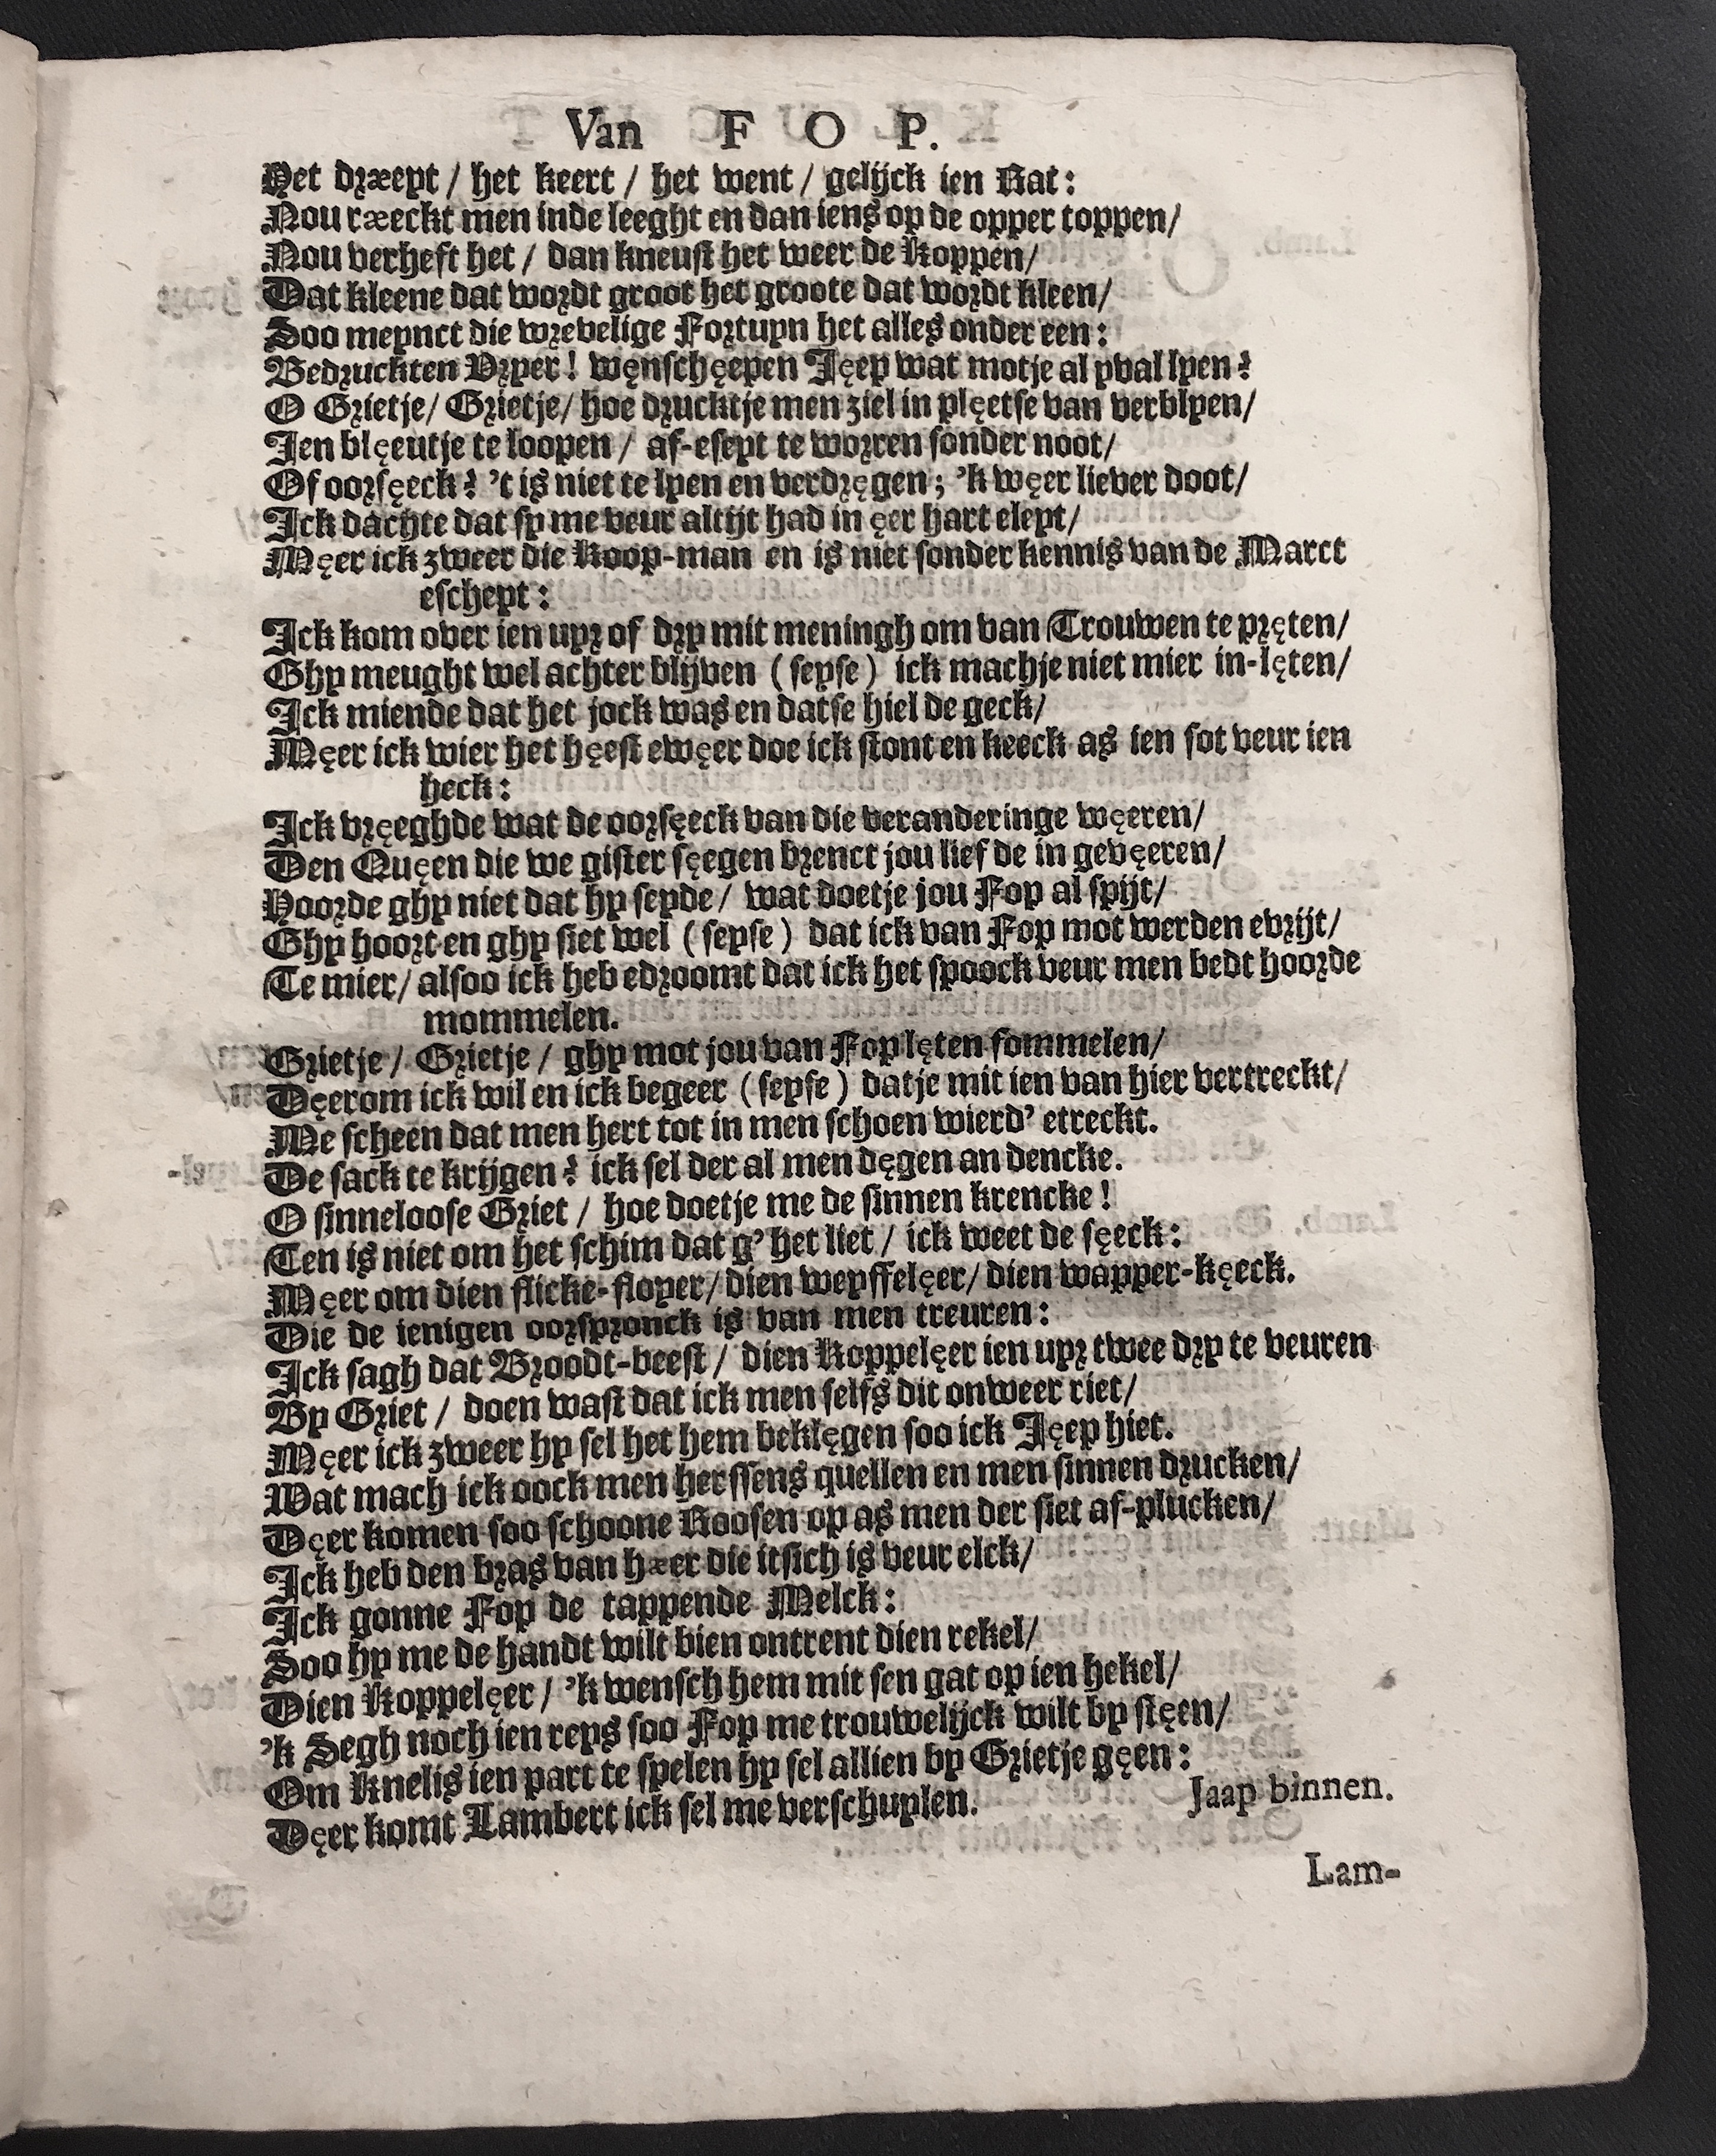 Van F O P.
Het dræeyt / het keert / het went / gelijck ien Rat:
Nou ræeckt men inde leeght en dan iens op de opper toppen/
Nou verheft het / dan kneust het weer de Koppen/
Dat kleene dat wordt groot het groote dat wordt kleen/
Soo meynct die wrevelige Fortuyn het alles onder een:
Bedruckten Vryer! węnschęepen Jęep wat motje al yval lyen?
O Grietje/ Grietje/ hoe drucktje men ziel in plęetse van verblyen/
Ien blęeutje te loopen / af-eseyt te worren sonder noot/
Of oorsęeck? 't is niet te lyen en verdręgen; 'k węer liever doot/
Ick dachte dat sy me veur altijt had in ęer hart eleyt/
Męer ick zweer die Koop-man en is niet sonder kennis van de Marct
escheyt:
Ick kom over ien uyr of dry mit meningh om van Trouwen te pręten/
Ghy meught wel achter blijven (seyse) ick machje niet mier in-lęten/
Ick miende dat het jock was en datse hiel de geck/
Męer ick wier het hęest ewęer doe ick stont en keeck as ien sot veur ien
heck:
Ick vręeghde wat de oorsęeck van die veranderinge węeren/
Den Quęen die we gister sęegen brenct jou liefde in gevęeren/
Hoorde ghy niet dat hy seyde / wat doetje jou Fop al spijt/
Ghy hoort en ghy siet wel (seyse) dat ick van Fop mot werden evrijt/
Te mier/ alsoo ick heb edroomt dat ick het spoock veur men bedt hoorde
mommelen.
Grietje / Grietje / ghy mot jou van Fop lęten fommelen/
Dęerom ick wil en ick begeer (seyse) datje mit ien van hier vertreckt/
Me scheen dat men hert tot in men schoen wierd' etreckt.
De sack te krijgen? ick sel der al men dęgen an dencke.
O sinneloose Griet / hoe doetje me de sinnen krencke!
Ten is niet om het schim dat g' het liet / ick weet de sęeck:
Męer om dien flicke-floyer/ dien weyffelęer/ dien wapper-kęeck.
Die de ienigen oorspronck is van men treuren:
Ick sagh dat Broodt-beest / dien Koppelęer ien uyr twee dry te veuren
By Griet / doen wast dat ick men selfs dit onweer riet/
Męer ick zweer hy sel het hem beklęgen soo ick Jęep hiet.
Wat mach ick oock men herssens quellen en men sinnen drucken/
Dęer komen soo schoone Roosen op as men der siet af-plucken/
Ick heb den bras van hæer die itsich is veur elck/
Ick gonne Fop de tappende Melck:
Soo hy me de handt wilt bien ontrent dien rekel/
Dien Koppelęer / 'k wensch hem mit sen gat op ien hekel/
'k Segh noch ien reys soo Fop me trouwelijck wilt by stęen/
Om Knelis ien part te spelen hy sel allien by Grietje gęen:
Dęer komt Lambert ick sel me verschuylen.
Jaap binnen.
Lam-